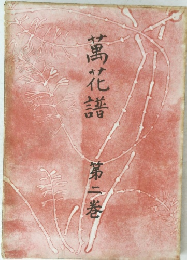 萬花譜
第二巻